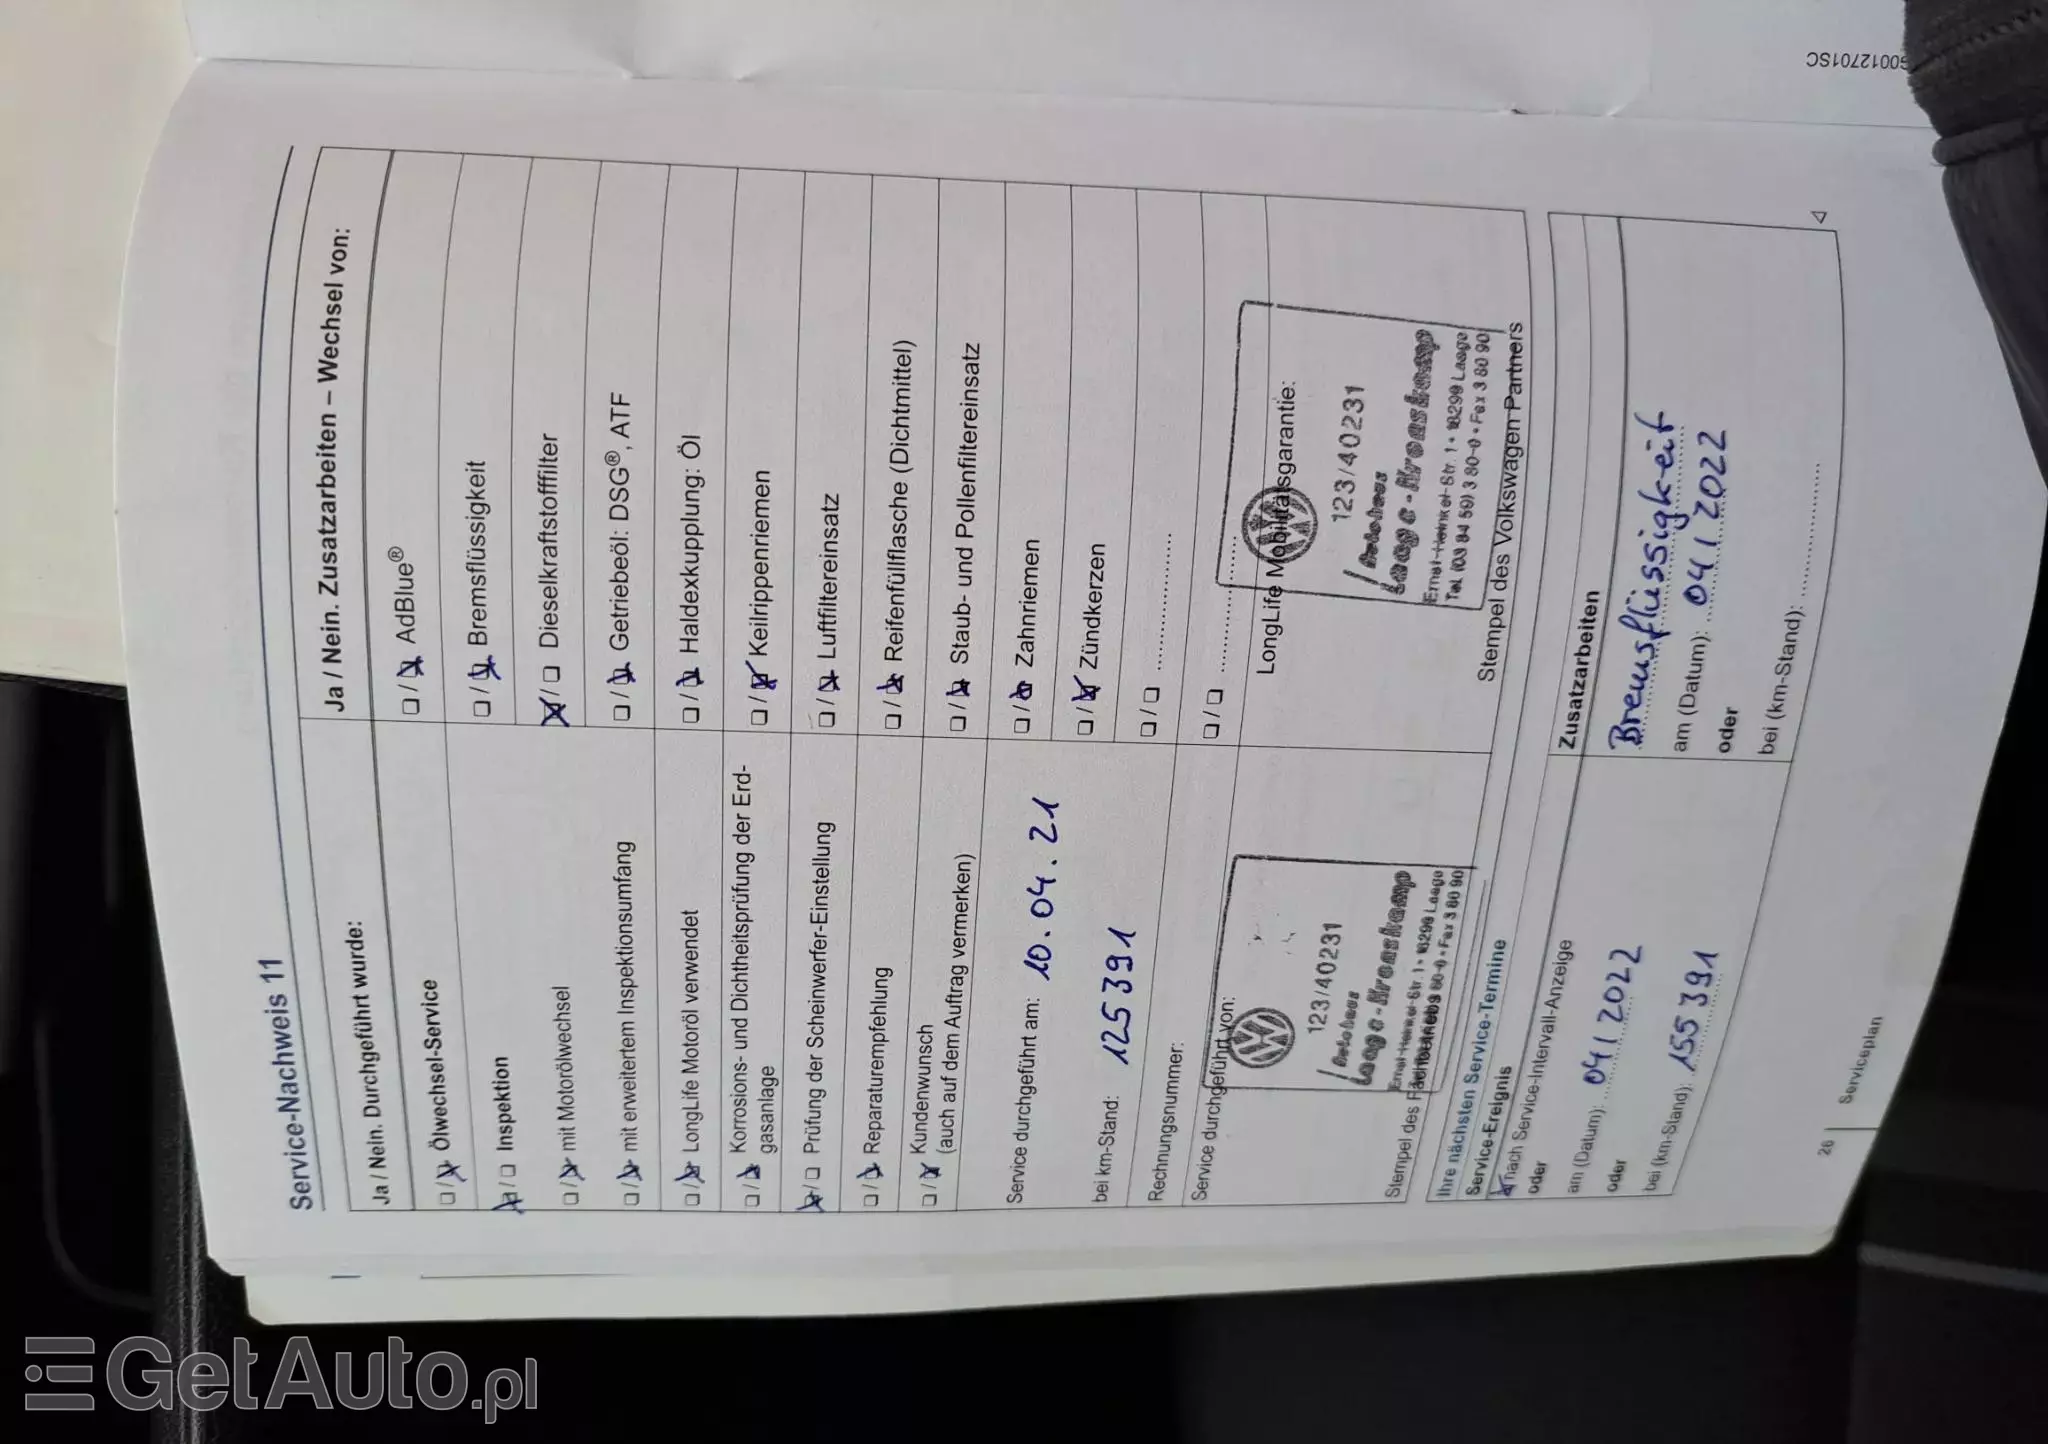 Service-Nachweis 11
Ja / Nein. Durchgeführt wurde:
☐/☒ Ölwechsel-Service
☒/☐ Inspektion
☐/☒ mit Motorölwechsel
☐/☒ mit erweitertem Inspektionsumfang
☐/☒ LongLife Motoröl verwendet
☐/☒ Korrosions- und Dichtheitsprüfung der Erd-
gasanlage
☒/☐ Prüfung der Scheinwerfer-Einstellung
☐/☒ Reparaturempfehlung
☐/☒ Kundenwunsch
(auch auf dem Auftrag vermerken)
Service durchgeführt am: 10.04.21
bei km-Stand: 125391
Rechnungsnummer:
Service durchgeführt von:
123/40231
Laage-Kronskamp
Stempel des Fachbetriebs
Ja / Nein. Zusatzarbeiten – Wechsel von:
☐/☒ AdBlue®
☐/☒ Bremsflüssigkeit
☒/☐ Dieselkraftstofffilter
☐/☒ Getriebeöl: DSG®, ATF
☐/☒ Haldexkupplung: Öl
☐/☒ Keilrippenriemen
☐/☒ Luftfiltereinsatz
☐/☒ Reifenfüllflasche (Dichtmittel)
☐/☒ Staub- und Pollenfiltereinsatz
☐/☒ Zahnriemen
☐/☒ Zündkerzen
☐/☐ ....................
☐/☐ ....................
LongLife Mobilitätsgarantie:
123/40231
Autohaus
Laage-Kronskamp
Ernst-Heinkel-Str. 1 • 18299 Laage
Tel. (03 84 59) 3 80-0 • Fax 3 80 90
Stempel des Volkswagen Partners
Ihre nächsten Service-Termine
Service-Ereignis
☒ nach Service-Intervall-Anzeige
oder
am (Datum): 04/2022
oder
bei (km-Stand): 155391
Zusatzarbeiten
Bremsflüssigkeit
am (Datum): 04/2022
oder
bei (km-Stand): ....................
26
Serviceplan
GetAuto.pl